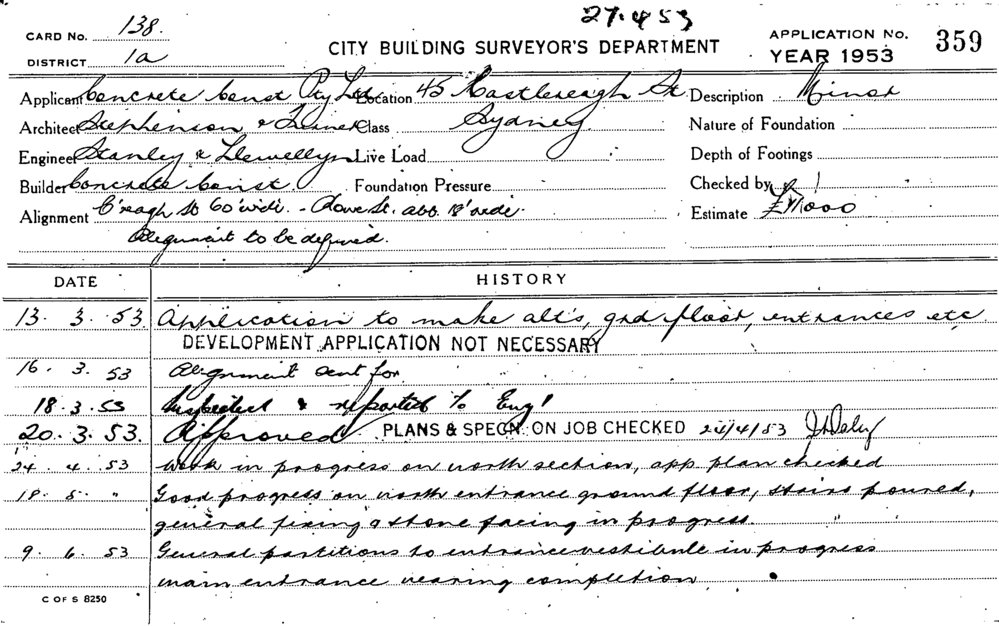 27.4.53
CARD No. 138.
CITY BUILDING SURVEYOR'S DEPARTMENT
APPLICATION No. 359
YEAR 1953
DISTRICT 1a
Applicant Concrete Const Pty Ltd Location 45 Castlereagh St Description Minor
Architect Stephenson & Turner Class Sydney Nature of Foundation
Engineer Stanley & Llewellyn Live Load Depth of Footings
Builder Concrete Const Foundation Pressure Checked by
Alignment C'reagh St 60' wide. - Rowe St. abt. 18' wide. Estimate
Alignment to be defined.
DATE HISTORY
13. 3. 53 Application to make alt's, grd floor, entrances etc
DEVELOPMENT APPLICATION NOT NECESSARY
16. 3. 53 Alignment sent for
18.3.53 Inspected & reported to Eng'
20.3.53. Approved PLANS & SPECN. ON JOB CHECKED 24/4/53
24. 4. 53 Work in progress on north section, app. plan checked
18. 5. " Good progress on north entrance ground floor, stairs poured,
general fixing & stone facing in progress.
9. 6. 53 General partitions to entrance vestibule in progress
main entrance nearing completion
C OF S 8250